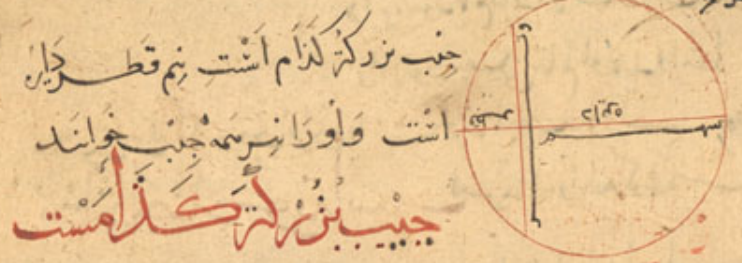 جیب بزرکتر کذام است نیم قطر دایره
است و اورا جیب خوانند
جیب بزرکتر کذامست
دایره